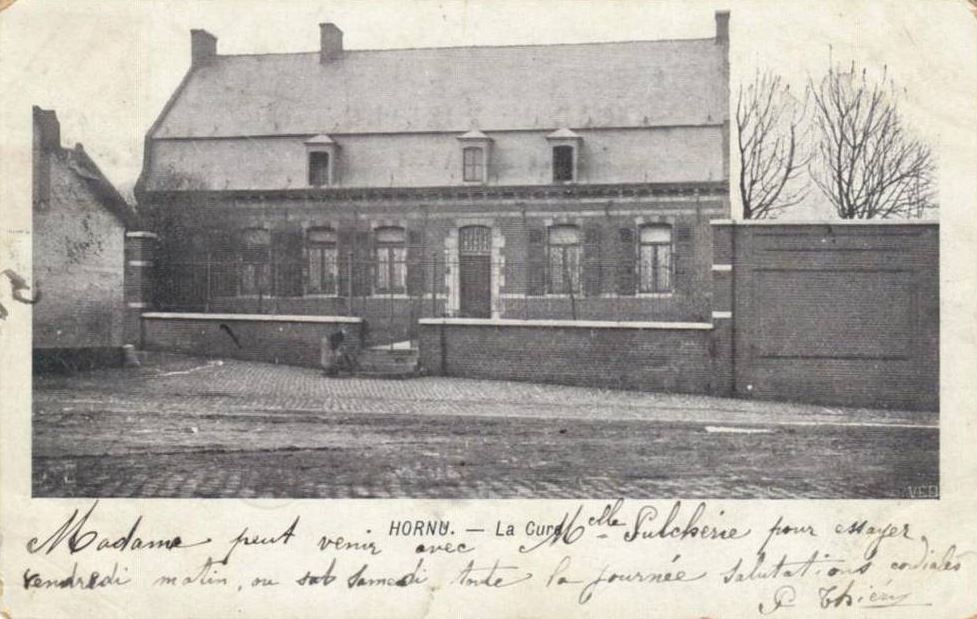 VED
HORNU. — La Cure
Madame peut venir avec Melle Pulchérie pour essayer
vendredi matin, ou sab samedi toute la journée salutations cordiales
P Thiéry